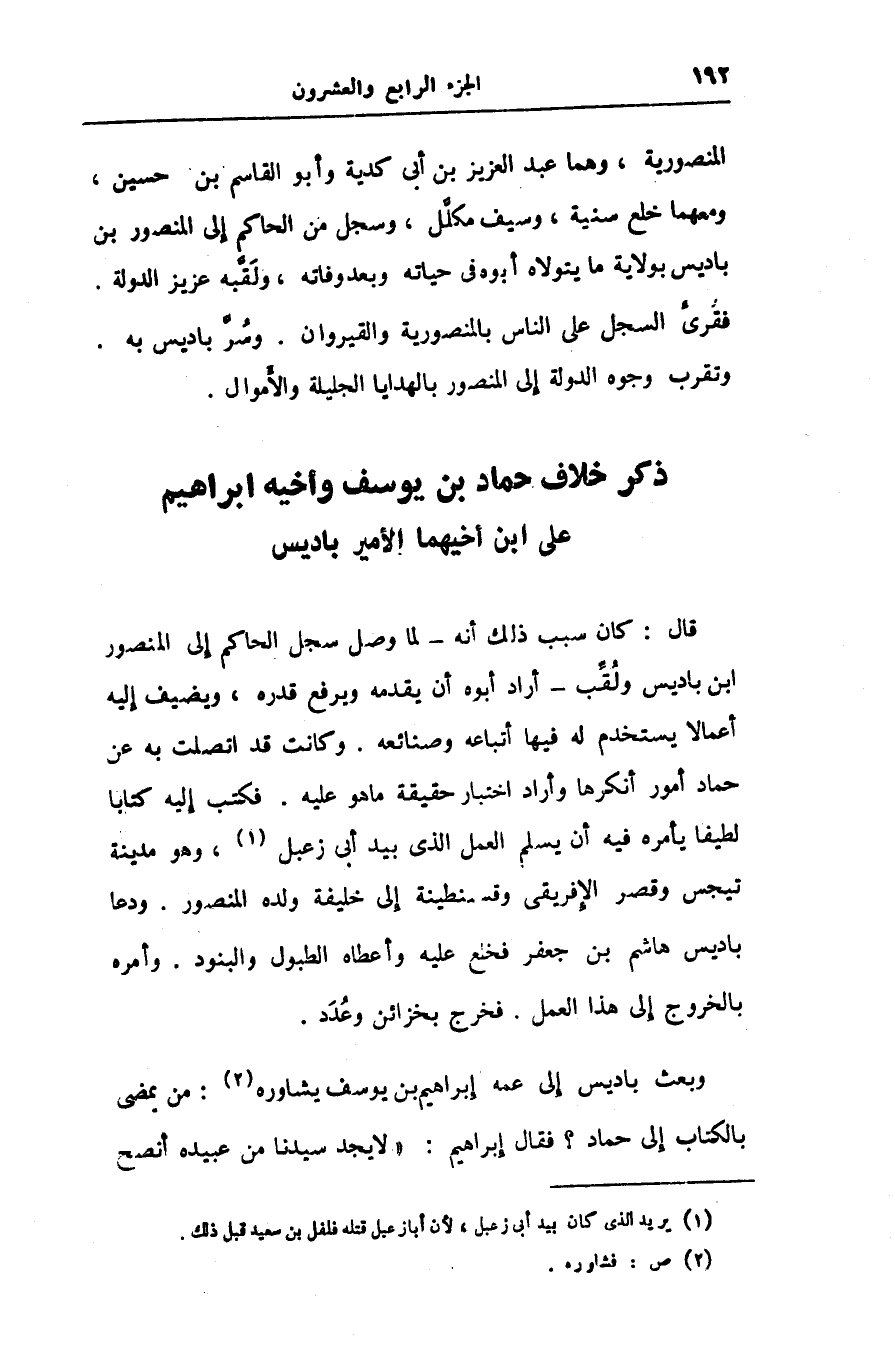 ١٩٢
الجزء الرابع والعشرون
المنصورية ، وهما عبد العزيز بن أبى كدية وأبو القاسم بن حسين ،
ومعهما خلع سنية ، وسيف مكلَّل ، وسجل من الحاكم إلى المنصور بن
باديس بولاية ما يتولاه أبوه فى حياته وبعد وفاته ، ولَقَّبه عزيز الدولة .
فقُرِىُّ السجل على الناس بالمنصورية والقيروان . وسُرَّ باديس به .
وتقرب وجوه الدولة إلى المنصور بالهدايا الجليلة والأَموال .
ذكر خلاف حماد بن يوسف وأخيه ابراهيم
على ابن أخيهما الأمير باديس
قال : كان سبب ذلك أنه - لما وصل سجل الحاكم إلى المنصور
ابن باديس ولُقِّب - أراد أبوه أن يقدمه ويرفع قدره ، ويضيف إليه
أعمالا يستخدم له فيها أتباعه وصنائعه . وكانت قد اتصلت به عن
حماد أمور أنكرها وأراد اختبار حقيقة ماهو عليه . فكتب إليه كتابا
لطيفا يأمره فيه أن يسلم العمل الذى بيد أبى زعبل (١) ، وهو مدينة
تيجس وقصر الإفريقى وقسنطينة إلى خليفة ولده المنصور . ودعا
باديس هاشم بن جعفر فخلع عليه وأعطاه الطبول والبنود . وأمره
بالخروج إلى هذا العمل . فخرج بخزائن وعُدَد .
وبعث باديس إلى عمه إبراهيم بن يوسف يشاوره (٢) : من يمضى
بالكتاب إلى حماد ؟ فقال إبراهيم : « لايجد سيدنا من عبيده أنصح
(١) يريد الذى كان بيد أبى زعبل ، لأن أبازعبل قتله فلفل بن سعيد قبل ذلك .
(٢) ص : فشاوره .